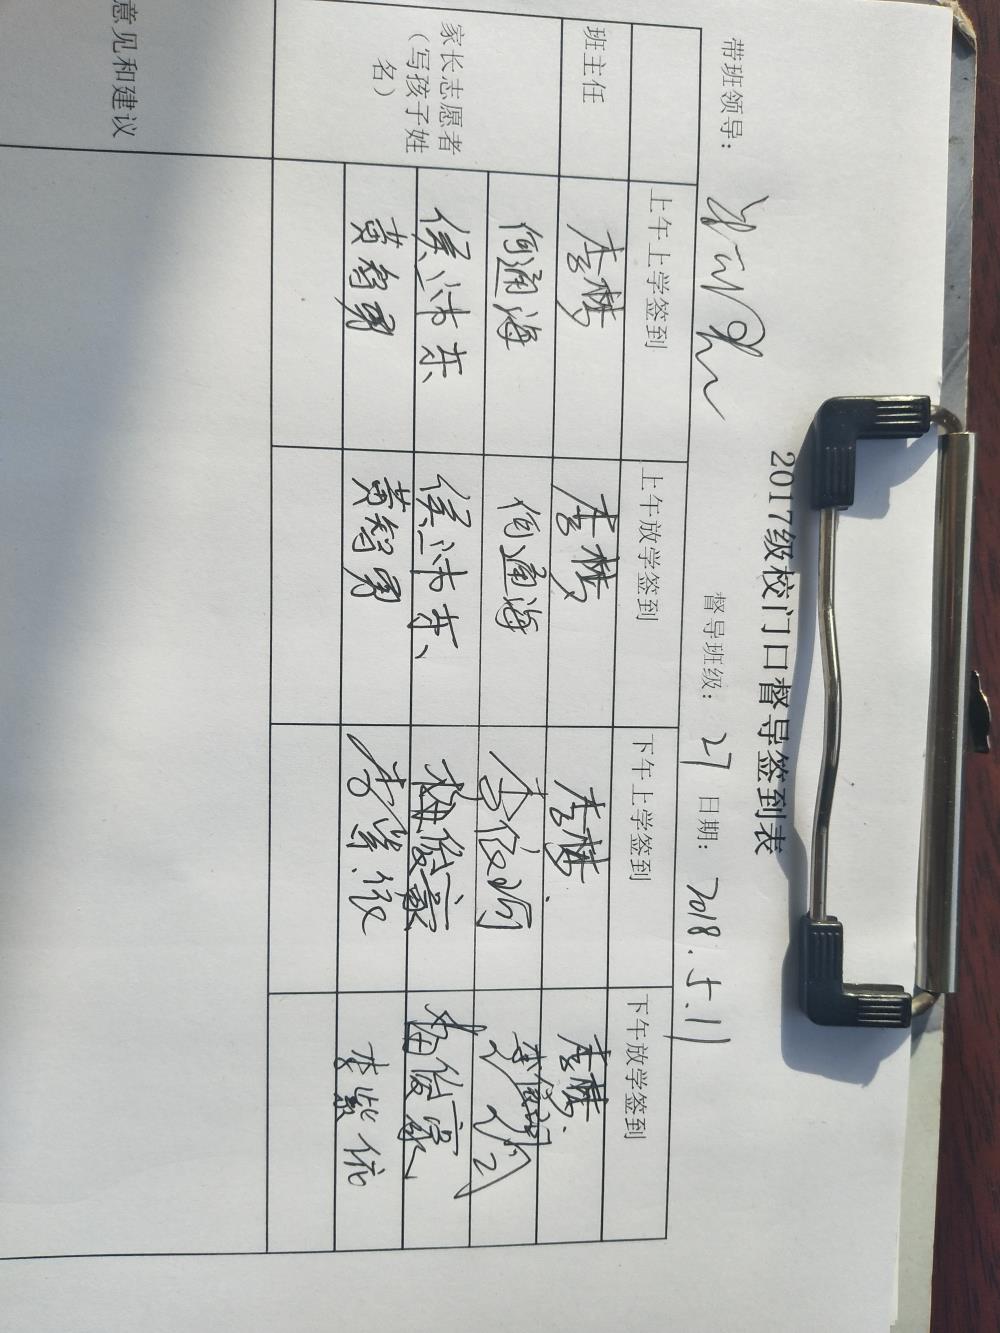 2017级校门口督导签到表
带班领导： 督导班级：27 日期：2018.5.11
上午上学签到 上午放学签到 下午上学签到 下午放学签到
班主任 李梦 李梦 李梦 李梦
家长志愿者（写孩子姓名） 何通海 何通海
侯沛东 侯沛东 梅俊豪 梅俊豪
黄智勇 黄智勇 李紫依 李紫依
意见和建议